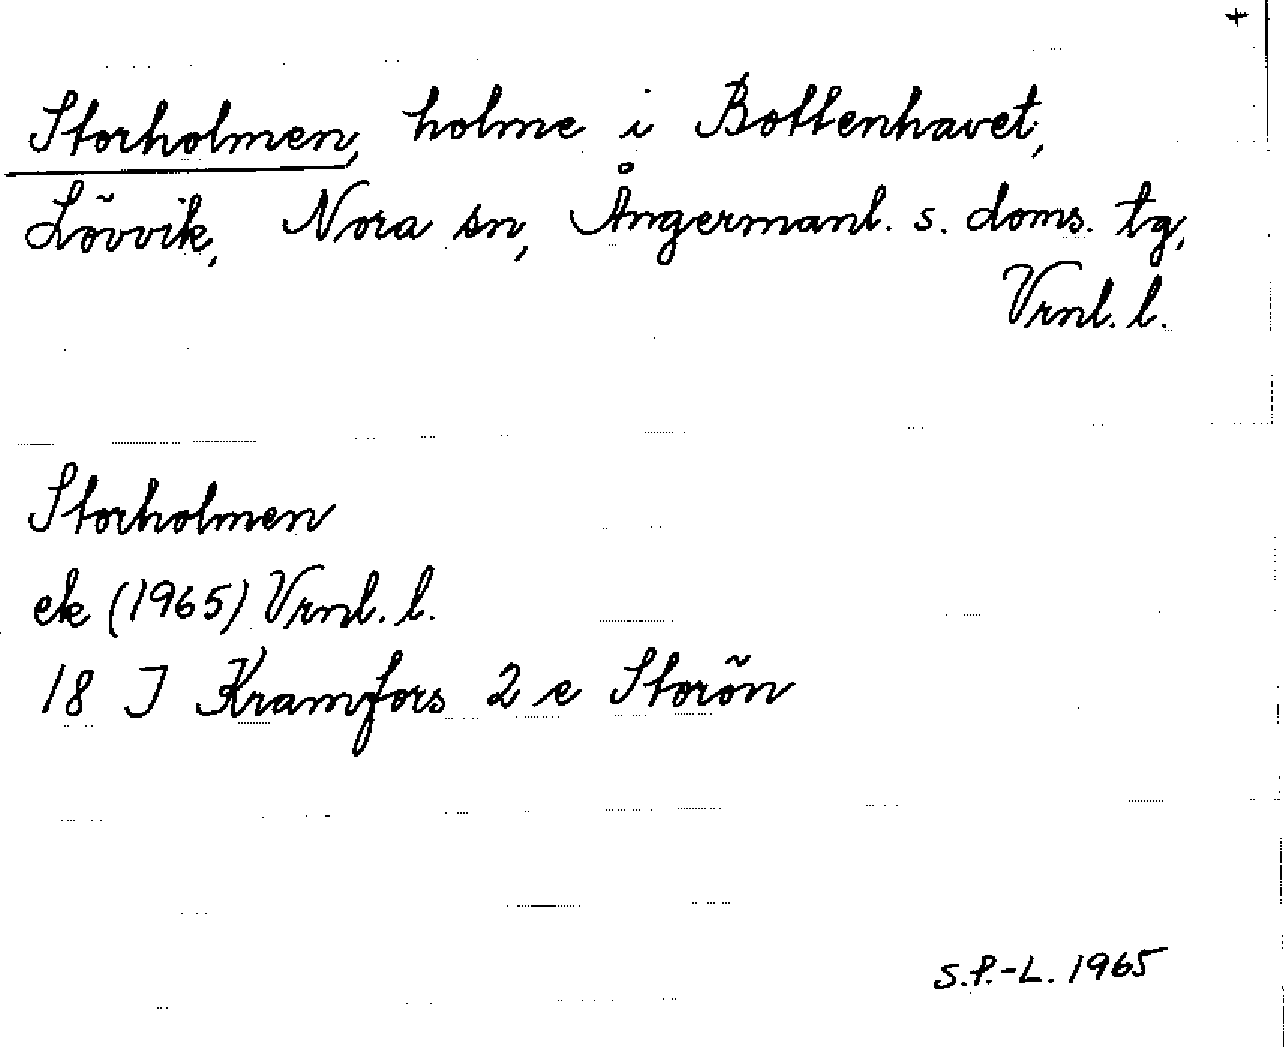 +
Storholmen, holme i Bottenhavet,
Lövvik, Nora sn, Ångermanl. s. doms. tg,
Vrnl. l.
Storholmen
ek (1965) Vrnl. l.
18 I Kramfors 2 e Storön
S.P.-L. 1965